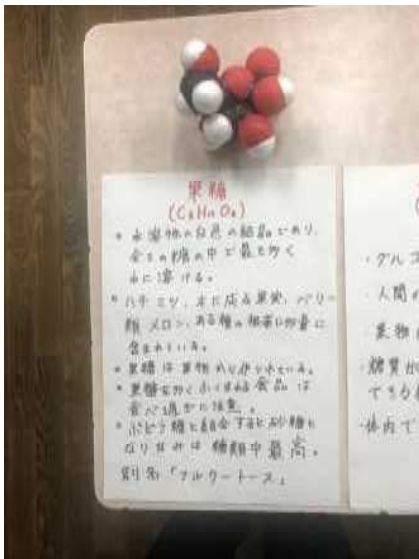 果糖
(C₆H₁₂O₆)
・水溶物の白色の結晶であり、
全ての糖の中で最も多く
水に溶ける。
・ハチミツ、木に成る果実、ベリー
類、メロン、ある種の根菜に多量に
含まれている。
・果糖は果物から作られている。
・果糖を多くふくまれる食品は
食べ過ぎに注意。
・ぶどう糖と結合すると砂糖と
なり甘みは糖類中最高。
別名「フルクトース」
・グルコ
・人間の
果物
・糖質が
できる
・体内で